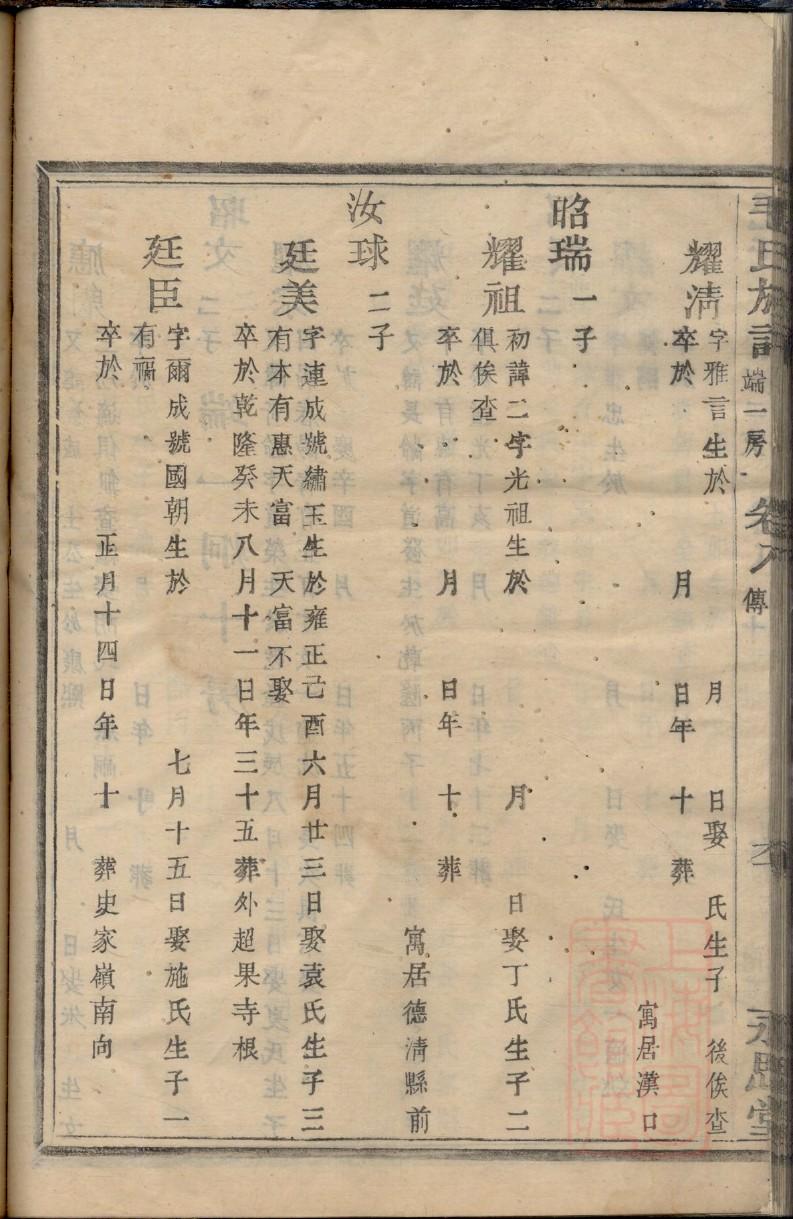 毛氏族譜 端一房 卷八 傳 永思堂
耀淸 字雅言生於 月 日娶 氏生子 後俟査
卒於 月 日年 十 葬
寓居漢口
昭瑞 一子
耀祖 初諱二字光祖生於 月 日娶丁氏生子二
俱俟査
卒於 月 日年 十 葬
寓居德淸縣前
汝球 二子
廷美 字連成號繡玉生於雍正己酉六月廿三日娶袁氏生子三
有本有惠天富 天富不娶
卒於乾隆癸未八月十一日年三十五葬外超果寺根
廷臣 字爾成號國朝生於 七月十五日娶施氏生子一
有福
卒於 正月十四日年 十 葬史家嶺南向